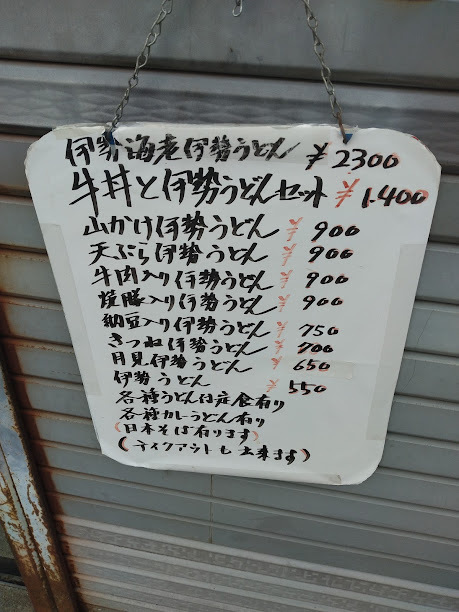 伊勢海老伊勢うどん ¥2300
牛丼と伊勢うどんセット ¥1.400
山かけ伊勢うどん ¥900
天ぷら伊勢うどん ¥900
牛肉入り伊勢うどん ¥900
焼豚入り伊勢うどん ¥900
納豆入り伊勢うどん ¥750
きつね伊勢うどん ¥700
月見伊勢うどん ¥650
伊勢うどん ¥550
各種うどんは定食有り
各種カレーうどん有り
(日本そば有ります)
(テイクアウトも出来ます)